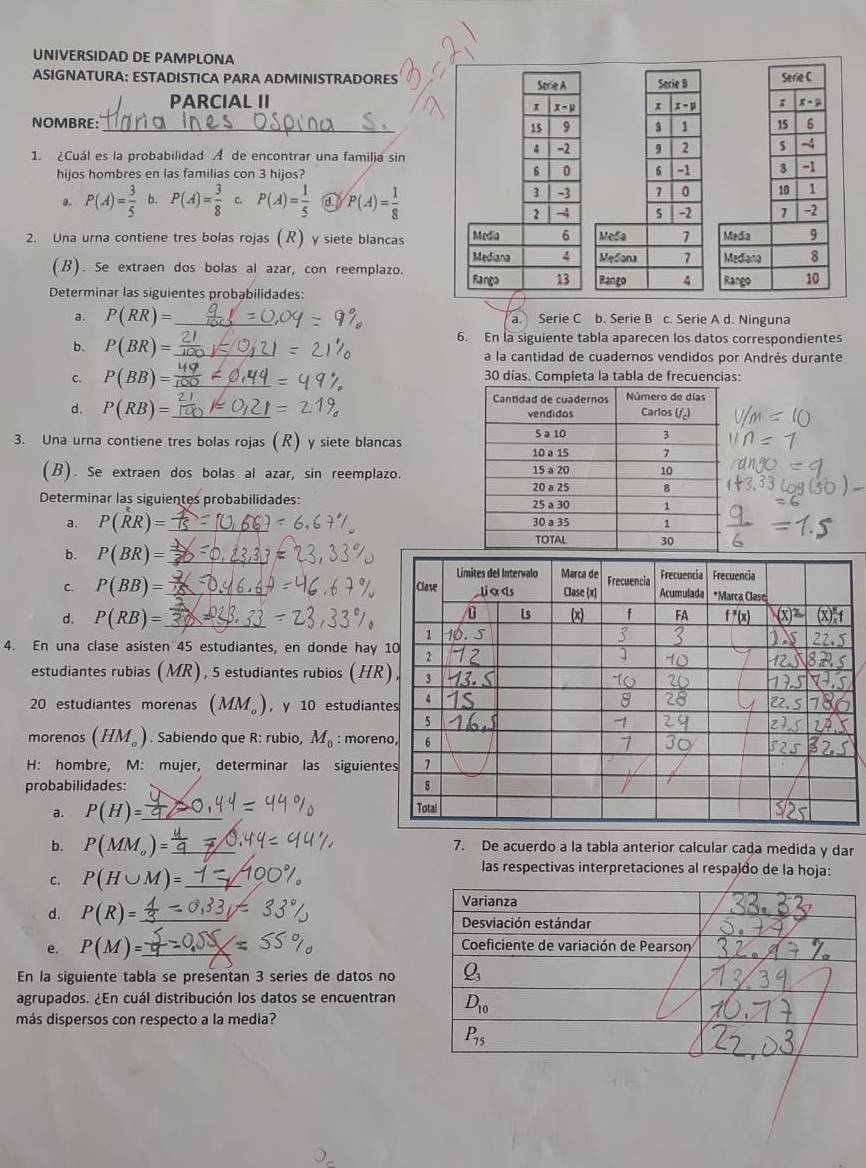 UNIVERSIDAD DE PAMPLONA
ASIGNATURA: ESTADISTICA PARA ADMINISTRADORES
PARCIAL II
NOMBRE: Maria Ines Ospina S.
1. ¿Cuál es la probabilidad A de encontrar una familia sin
hijos hombres en las familias con 3 hijos?
a. P(A)=3/5 b. P(A)=3/8 c. P(A)=1/5 d. P(A)=1/8
2. Una urna contiene tres bolas rojas (R) y siete blancas
(B). Se extraen dos bolas al azar, con reemplazo.
Determinar las siguientes probabilidades:
a. P(RR)= 9/100 = 0,09 = 9%
b. P(BR)= 21/100 = 0,21 = 21%
c. P(BB)= 49/100 = 0,49 = 49%
d. P(RB)= 21/100 = 0,21 = 21%
3. Una urna contiene tres bolas rojas (R) y siete blancas
(B). Se extraen dos bolas al azar, sin reemplazo.
Determinar las siguientes probabilidades:
a. P(RR)= = 0,667 = 6.67%
b. P(BR)= = 0,23,33 = 23,33%
c. P(BB)= = 0.46.67 = 46,67%
d. P(RB)= = 23,33%
4. En una clase asisten 45 estudiantes, en donde hay 10
estudiantes rubias (MR), 5 estudiantes rubios (HR),
20 estudiantes morenas (MMo), y 10 estudiantes
morenos (HMo). Sabiendo que R: rubio, M0: moreno,
H: hombre, M: mujer, determinar las siguientes
probabilidades:
a. P(H)= 4/9 = 0,44 = 44%
b. P(MMo)= 4/9 = 0.44 = 44%
c. P(H∪M)= 1 = 100%
d. P(R)= 1/3 = 0,33 = 33%
e. P(M)= 5/9 = 0,55 = 55%
En la siguiente tabla se presentan 3 series de datos no
agrupados. ¿En cuál distribución los datos se encuentran
más dispersos con respecto a la media?
Serie A
x x-μ
15 9
4 -2
6 0
3 -3
2 -4
Media 6
Mediana 4
Rango 13
Serie B
x x-μ
8 1
9 2
6 -1
7 0
5 -2
Media 7
Mediana 7
Rango 4
Serie C
x x-μ
15 6
5 -4
8 -1
10 1
7 -2
Media 9
Mediana 8
Rango 10
a. Serie C b. Serie B c. Serie A d. Ninguna
6. En la siguiente tabla aparecen los datos correspondientes
a la cantidad de cuadernos vendidos por Andrés durante
30 días. Completa la tabla de frecuencias:
Cantidad de cuadernos vendidos Número de días Carlos (fc)
5 a 10 3
10 a 15 7
15 a 20 10
20 a 25 8
25 a 30 1
30 a 35 1
TOTAL 30
V/m = 10
rango = 9
1+3.33 log(30) =
= 6
9/6 = 1.5
Clase Limites del Intervalo Marca de Clase (x) Frecuencia Frecuencia Acumulada Frecuencia *Marca Clase
Li Ls (x) f FA f*(x)
1 10.5 3 3 22.5
2 12 7 10 12.5
3 13.5 10 20 17.5
4 15 8 28 22.5 180
5 16,5 1 29 27.5 27.5
6 1 30 32.5 32.5
7
8
Total 525
7. De acuerdo a la tabla anterior calcular cada medida y dar
las respectivas interpretaciones al respaldo de la hoja:
Varianza 33.33
Desviación estándar 5.77
Coeficiente de variación de Pearson 32.97%
Q3 13.39
D10 10.77
P75 22,03